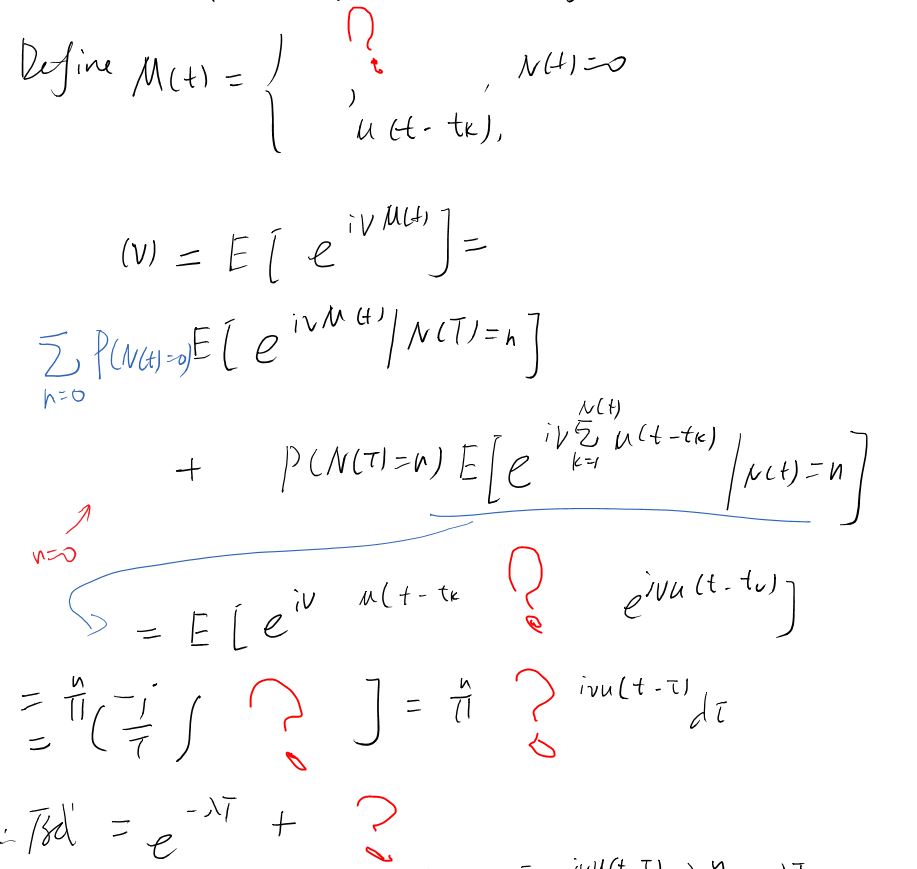 Define M(t) = { ? , N(t)=0
, u(t - tk),
(V) = E[ e^{iV M(t)} ] =
Σ_{n=0} P(N(t)=0) E[ e^{iνM(t)} / N(T)=n ]
+ P(N(T)=n) E[ e^{iV Σ_{k=1}^{N(t)} u(t-tk)} / N(t)=n ]
n=0
= E[ e^{iV u(t-tk} ? e^{iVu(t-tu)} ]
= = Π^{n} ( ∫ ? ] = Π^{n} ? ivu(t-τ) dτ
= e^{-λT} + ?